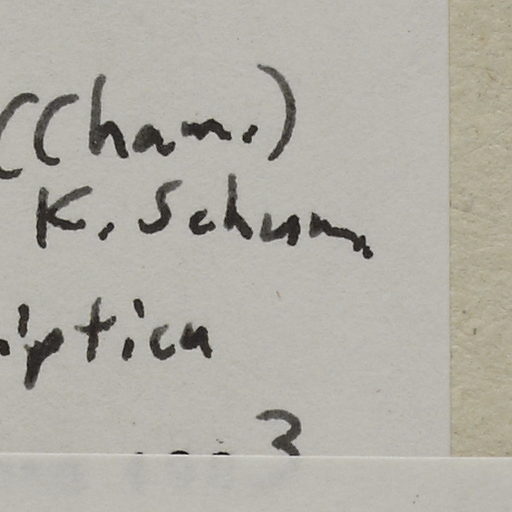 (Cham.)
K. Schum.
iptica
3